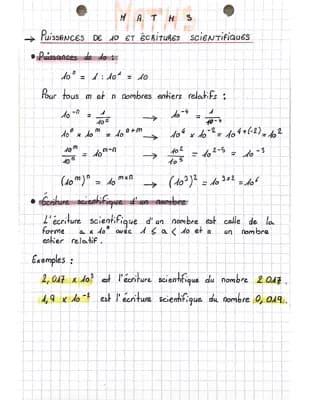 MATHS
→ PUISSANCES DE 10 ET ÉCRITURES SCIENTIFIQUES
• Puissances de 10 :
10⁰ = 1 ; 10¹ = 10
Pour tous m et n nombres entiers relatifs :
10⁻ⁿ = 1/10ⁿ → 10⁻⁴ = 1/10⁴
10ⁿ x 10ᵐ = 10ⁿ⁺ᵐ → 10⁴ x 10⁻² = 10⁴⁺⁽⁻²⁾ = 10²
10ᵐ/10ⁿ = 10ᵐ⁻ⁿ → 10²/10⁵ = 10²⁻⁵ = 10⁻³
(10ᵐ)ⁿ = 10ᵐˣⁿ → (10³)² = 10³ˣ² = 10⁶
• Écriture scientifique d'un nombre
L'écriture scientifique d'un nombre est celle de la
forme a x 10ⁿ avec 1 ≤ a < 10 et n un nombre
entier relatif.
Exemples :
2,017 x 10³ est l'écriture scientifique du nombre 2 017.
1,9 x 10⁻² est l'écriture scientifique du nombre 0,019.